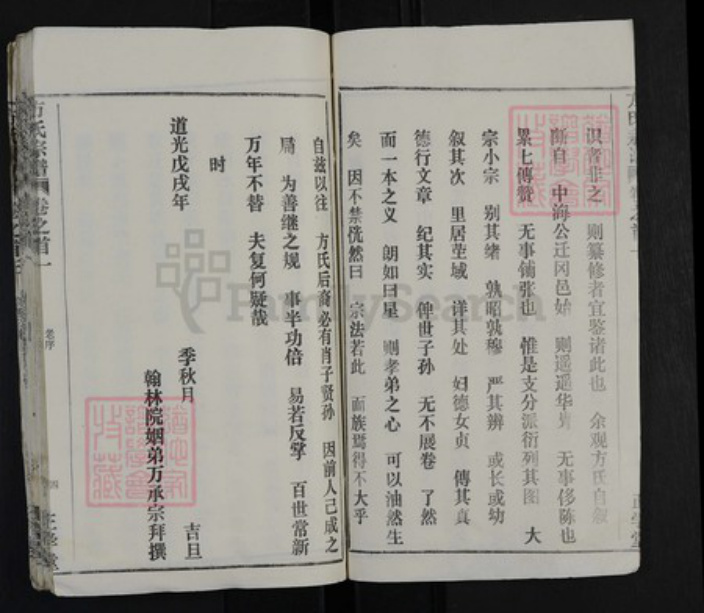 识者非之 则纂修者宜鉴诸此也 余观方氏自叙
断自 中海公迁冈邑始 则遥遥华胄 无事侈陈也
累七傳贊 无事铺张也 惟是支分派衍列其图 大
宗小宗 别其绪 孰昭孰穆 严其辨 或长或幼
叙其次 里居茔域 详其处 妇德女贞 傳其真
德行文章 纪其实 俾世子孙 无不展卷 了然
而一本之义 朗如日星 则孝弟之心 可以油然生
矣 因不禁恍然曰 宗法若此 而族焉得不大乎
自兹以往 方氏后裔必有肖子贤孙 因前人已成之
为善继之规 事半功倍 易若反掌 百世常新
万年不替 夫复何疑哉
时
道光戊戌年 季秋月 吉旦
翰林院姻弟万承宗拜撰
方氏宗谱 卷之首一
老序
四
FamilySearch